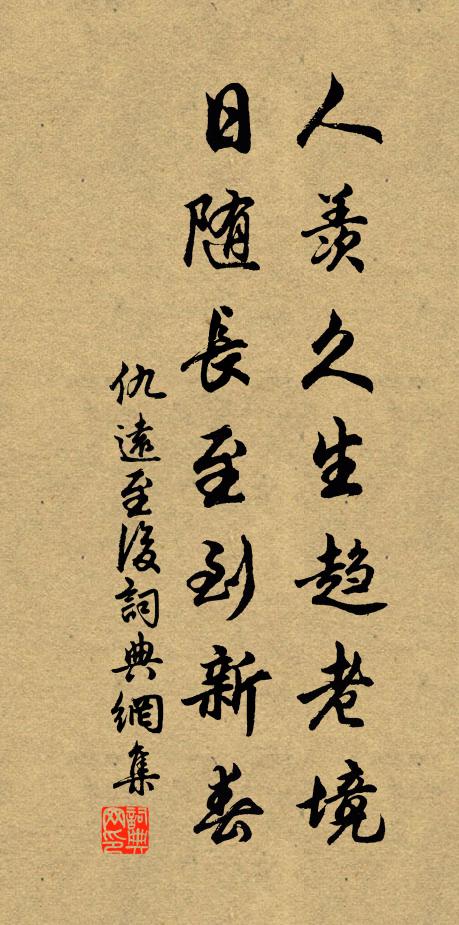 人羨久生趨老境
日随長至到新春
仇遠至後詞典網集
詞典網印